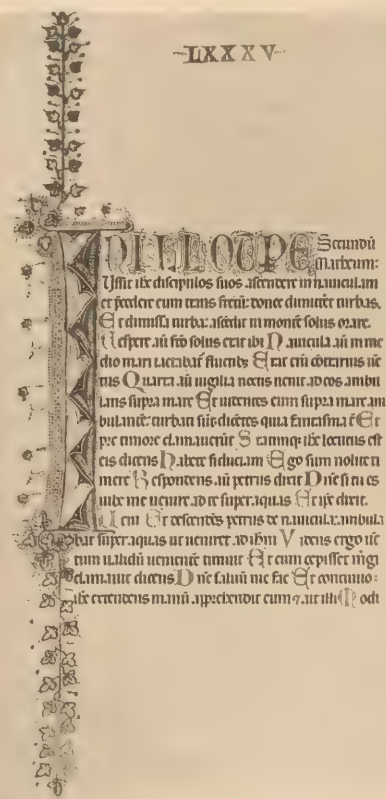 LXXXV
IN ILLO TPE Secundū
Matheum:
Iussit ihc discipulos suos ascendere in nauiculam
et p̄cedere eum trans fretū: donec dimitteret turbas.
Et dimissa turba: ascēdit in montē solus orare.
Uespere aū fc̄o solus erat ibi Nauicula aū in me
dio mari iactabat̄ fluctib; Erat eni cōtrarius uē
tus Quarta aū uigilia noctis uenit ad eos ambu
lans supra mare Et uidentes eum supra mare am
bulantē: turbati sūt dicētes quia fantasma ē Et
pre timore clamauerūt Statimq; ihc locutus est
eis dicens Habete fiduciam Ego sum nolite ti
mere Respondens aū petrus dixit Dn̄e si tu es
iube me uenire ad te super aquas Et ipe dixit.
Ueni Et descendēs petrus de nauicula: ambula
bat super aquas ut ueniret ad ihm Videns ergo uē
tum ualidū uenientē timuit Et cum cepisset mgi
clamauit dicens Dn̄e saluū me fac Et continuo:
ihc extendens manū apprehendit eum ⁊ ait illi Modi